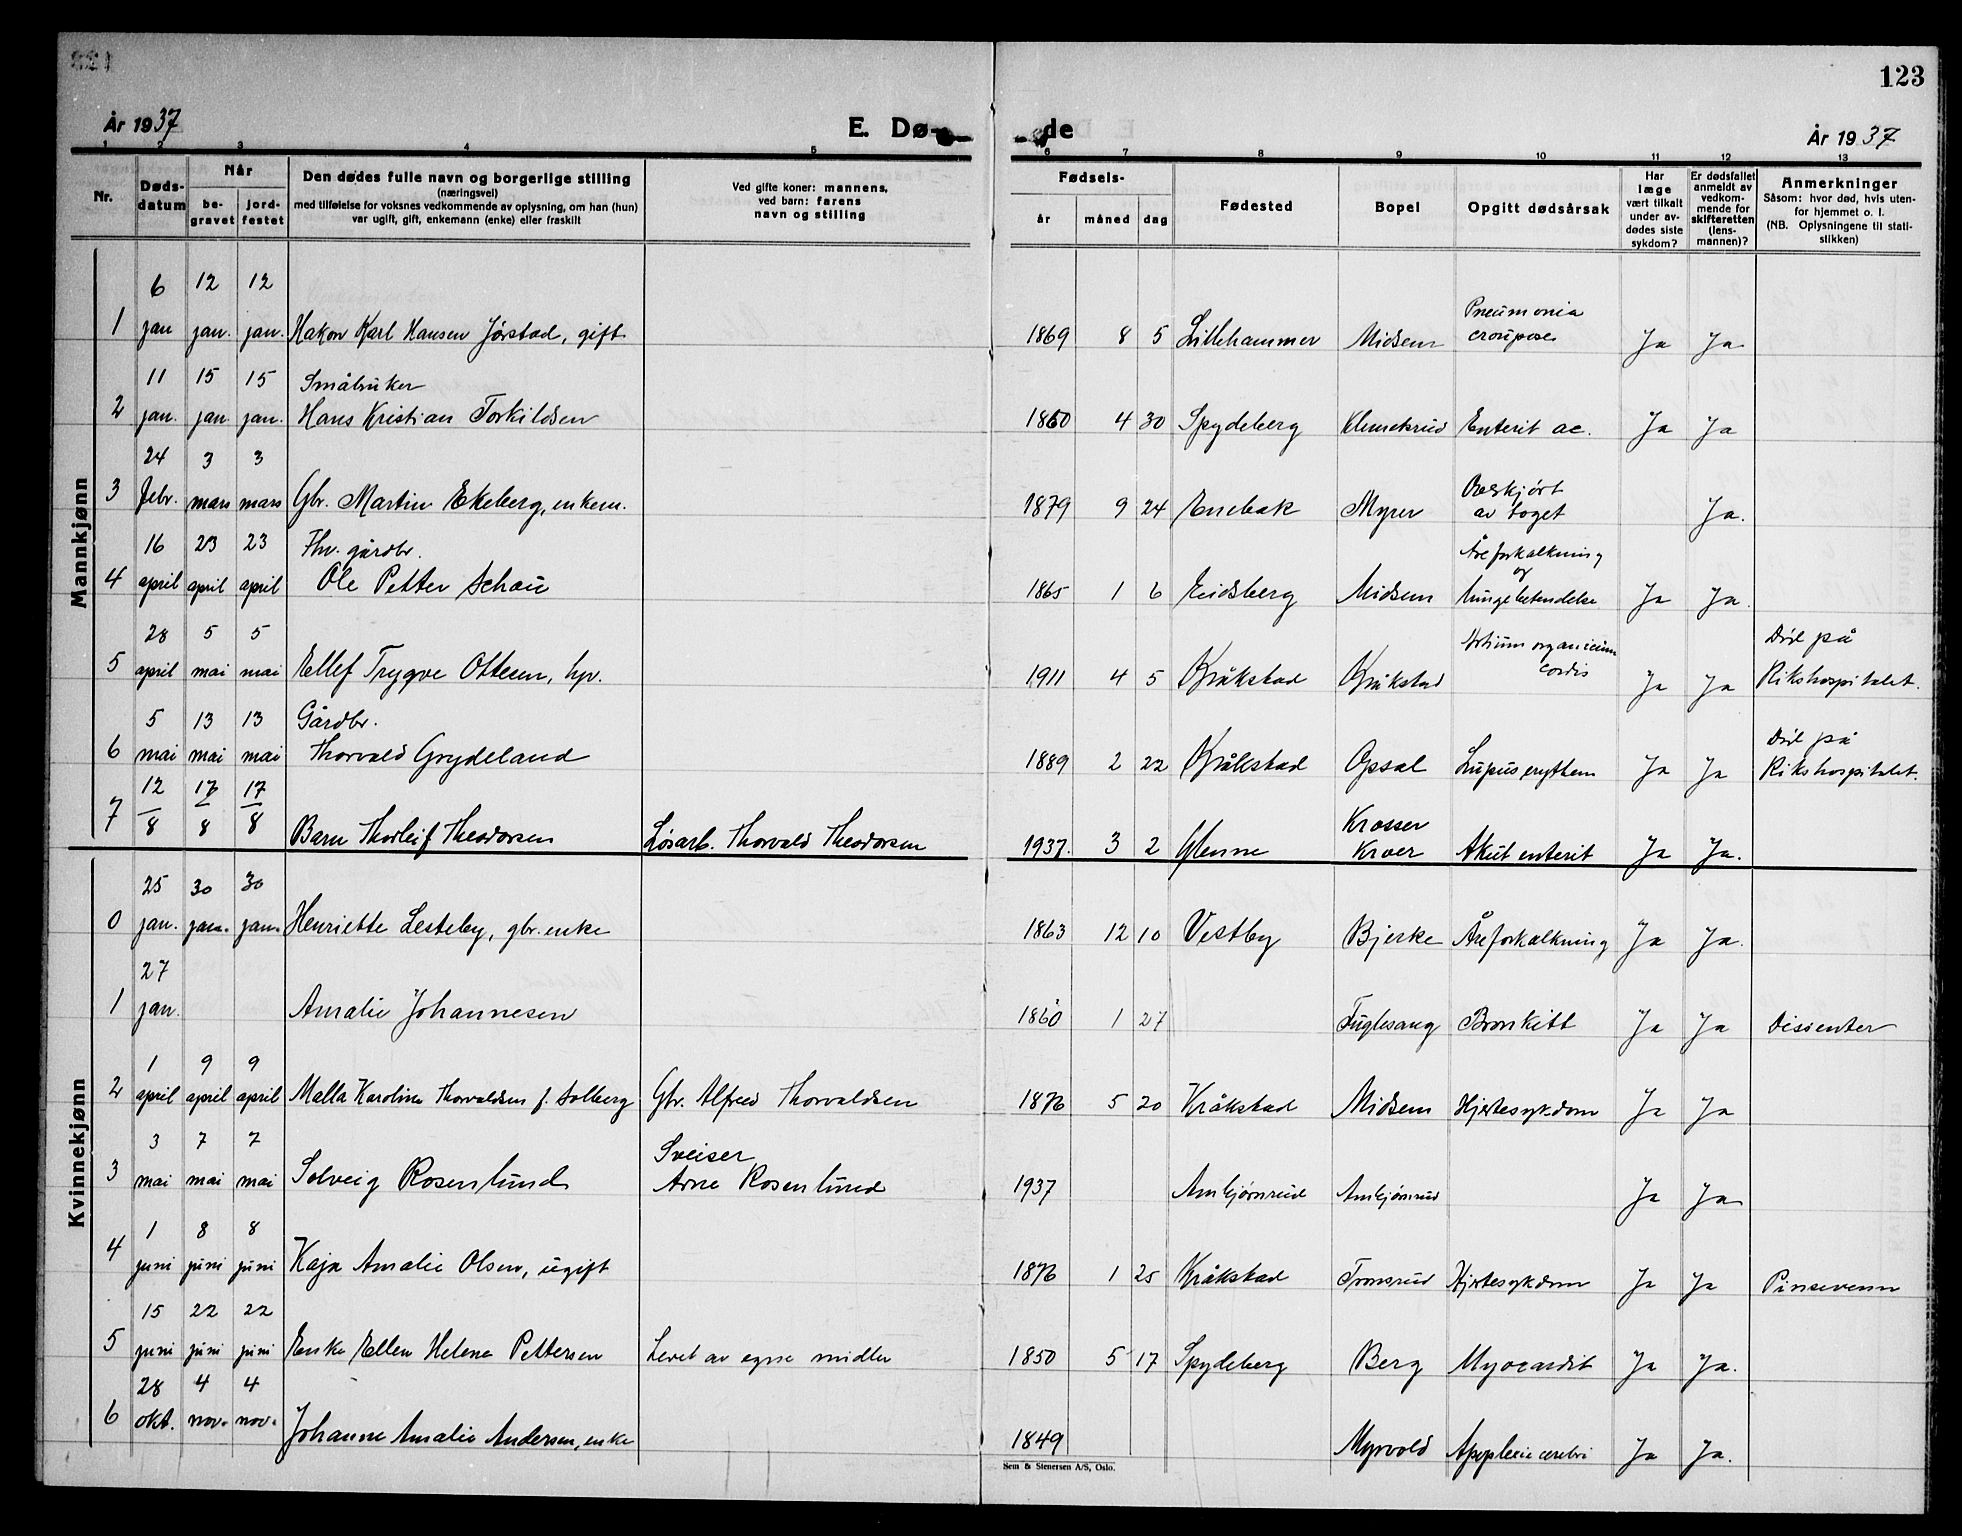 123
År 1937
E. Dø-
de
År 1937
1 2 3 4 5 6 7 8 9 10 11 12 13
Nr.
Døds-
datum
Når
be-
gravet
jord-
festet
Den dødes fulle navn og borgerlige stilling
(næringsvei)
med tilføielse for voksnes vedkommende av oplysning, om han (hun)
var ugift, gift, enkemann (enke) eller fraskilt
Ved gifte koner: mannens,
ved barn: farens
navn og stilling
Fødsels-
år måned dag
Fødested
Bopel
Opgitt dødsårsak
Har
læge
vært tilkalt
under av-
dødes siste
sykdom?
Er dødsfallet
anmeldt av
vedkom-
mende for
skifteretten
(lens-
mannen)?
Anmerkninger
Såsom: hvor død, hvis uten-
for hjemmet o. l.
(NB. Oplysningene til stati-
stikken)
Mannkjønn
6 12 12
Pneumonia
1 jan jan. jan. Hakon Karl Hansen Jørstad, gift 1869 8 5 Lillehammer Midsem croupose Ja Ja
11 15 15 Småbruker
2 jan. jan. jan. Hans Kristian Torkildsen 1860 4 30 Spydeberg Klemetsrud Enterit ac. Ja Ja
24 3 3
Overkjørt
3 febr. mars mars Gbr. Martin Ekeberg, enkem. 1879 9 24 Enebak Myrer av toget Ja.
16 23 23 Fhv. gårdbr.
Åreforkalkning
og
4 april april april Ole Petter Schau 1865 1 6 Eidsberg Midsem lungebetendelse Ja Ja.
28 5 5
Vitium organicum Død på
cordis
5 april mai mai Ellef Trygve Ottesen, hpr. 1911 4 5 Kråkstad Kråkstad Ja Ja Rikshospitalet.
5 13 13 Gårdbr.
Død på
6 mai mai mai Thorvald Grydeland 1889 2 22 Kråkstad Opsal Lupus erythem Ja Ja Rikshospitalet.
12 17 17
Krosser
7 8 8 8 Barn Thorleif Theodorsen Løsarb. Thorvald Theodorsen 1937. 3 2 Glenne Kroer Akut enterit Ja Ja.
Kvinnekjønn
25 30 30
0 jan. jan. jan. Henriette Lesteby, gbr. enke 1863 12 10 Vestby Bjerke Åreforkalkning Ja Ja.
27
1 jan. Amalie Johannesen 1860 1 27 Fuglesang Bronkitt Ja Ja Dissenter
1 9 9
2 april april april Malla Karoline Thorvaldsen f. Solberg Gbr. Alfred Thorvaldsen 1876 5 20 Kråkstad Midsem Hjertesykdom Ja Ja
3 7 7 Sveiser
3 mai mai mai Solveig Rosenlund Arne Rosenlund 1937 Ambjørnrud Ambjørnrud Ja Ja
1 8 8
4 juni juni juni Kaja Amalie Olsen, ugift 1876 1 25 Kråkstad Tronsrud Hjertesykdom Ja Ja Pinsevenn
15 22 22
5 juni juni juni Enke Ellen Helene Pettersen Levet av egne midler 1850 5 17 Spydeberg Berg Myocardit Ja Ja.
28 4 4
6 okt. nov. nov. Johanne Amalie Andersen, enke 1849 Myrvold Apoplexie cerebri Ja Ja.
Sem & Stenersen A/S, Oslo.